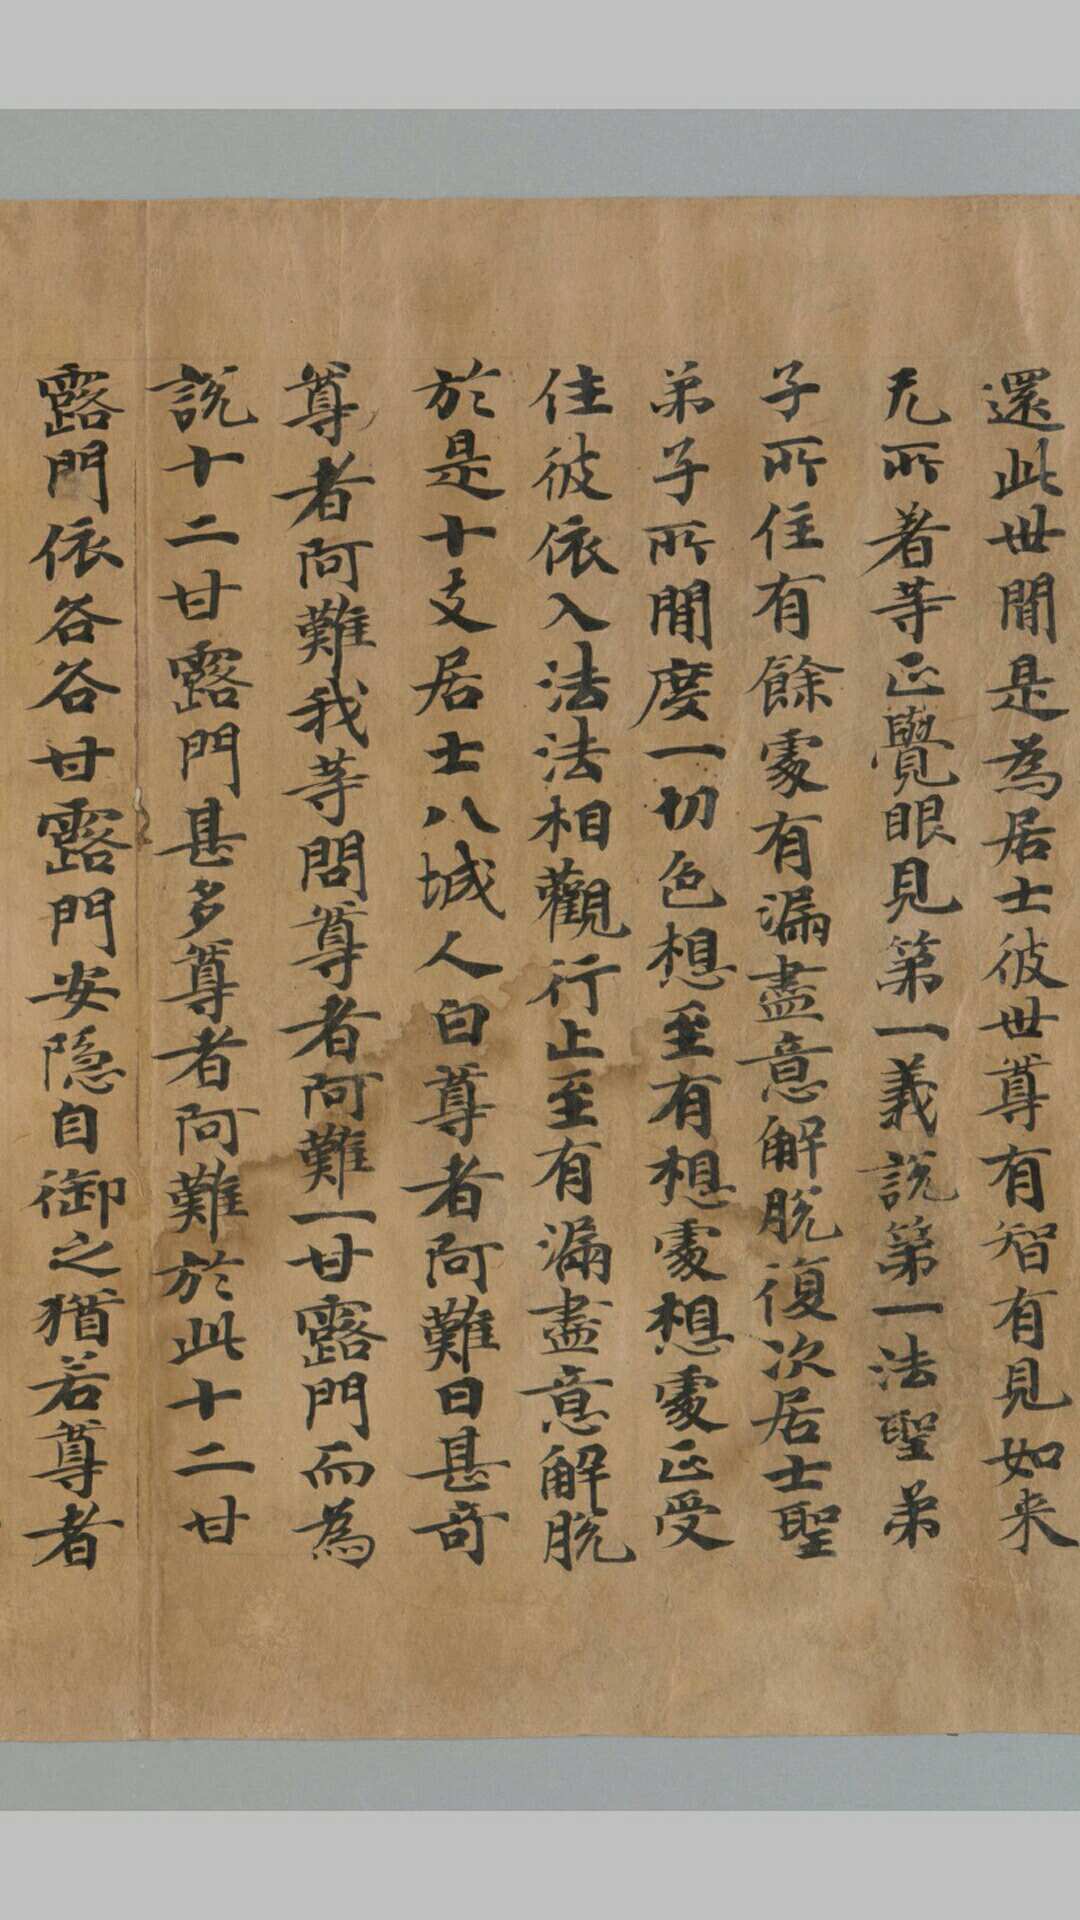 還此世間是為居士彼世尊有智有見如来
无所著等正覺眼見第一義說第一法聖弟
子所住有餘處有漏盡意解脫復次居士聖
弟子所聞度一切色想至有想處想處正受
住彼依入法法相觀行止至有漏盡意解脫
於是十支居士八城人白尊者阿難曰甚奇
尊者阿難我等問尊者阿難一甘露門而為
說十二甘露門甚多尊者阿難於此十二甘
露門依各各甘露門安隱自御之猶若尊者